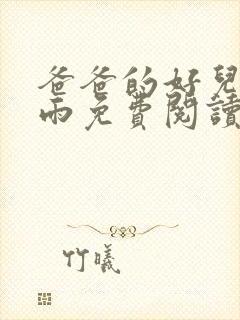 爸爸的好兒
雨免費閱讀
竹曦